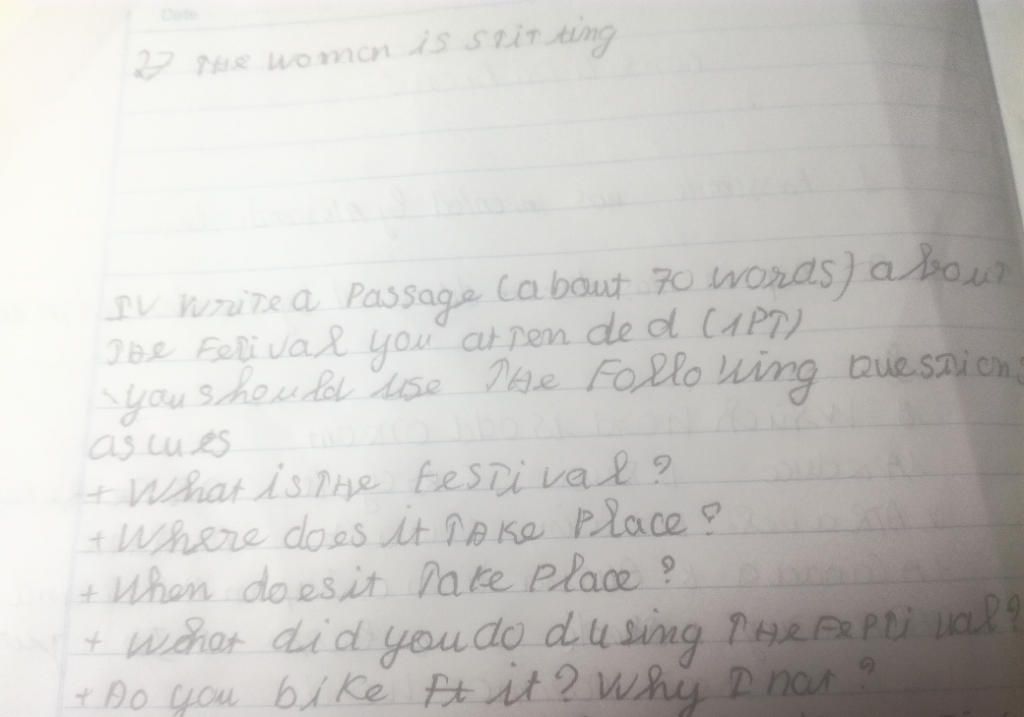 Date
2) THE women is stitting
IV write a passage (about 70 words) about
THE Fetival you attended (1PT)
you should use THE Following Question
as cues
+ What is THE Festival?
+ Where does it TAKE Place?
+ When does it Take Place?
+ What did you do dusing THE Feptival?
+ Do you bike it? Why I nat?